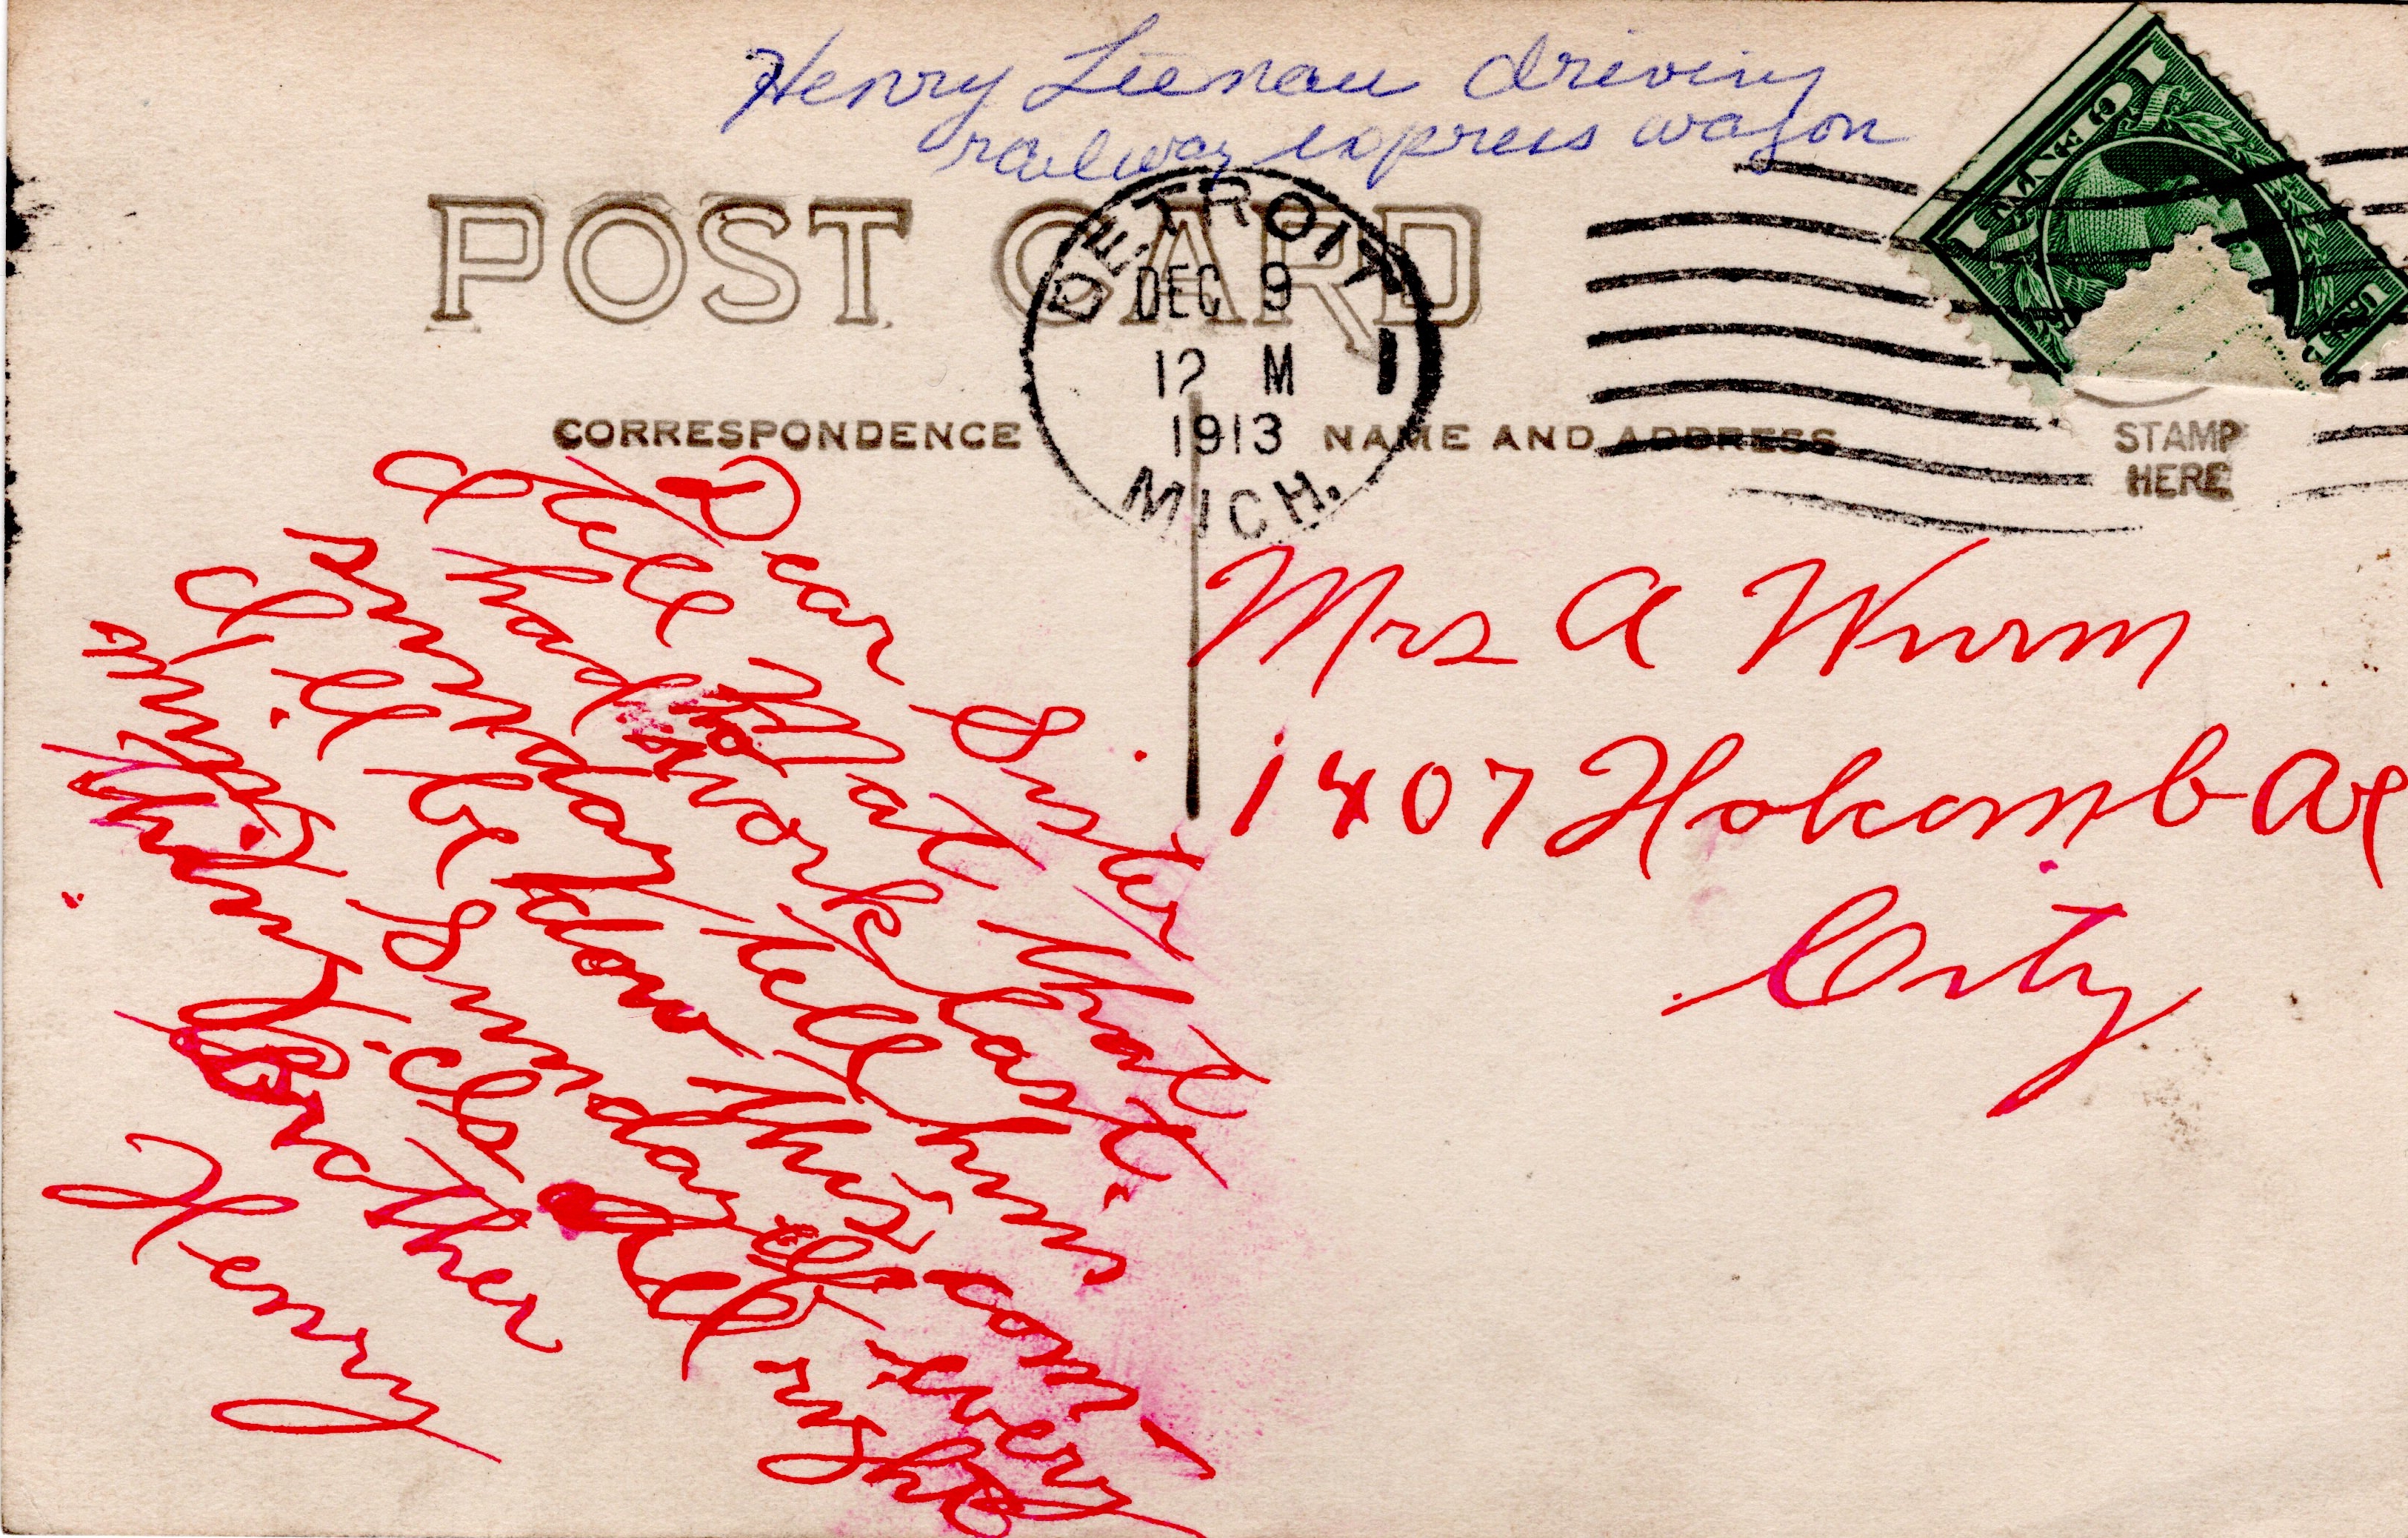 Henry Lienau driving
railway express wagon
POST CARD
DETROIT
DEC 9
12 M
1913
MICH.
1
ONE CENT
1
CORRESPONDENCE
NAME AND ADDRESS
STAMP
HERE
Dear Sister
I tell Mat that I
had to work last
sunday tell him
I'll be down this com-
ming Sunday if every
thing is all right
Brother
Henry
Mrs A Wurm
1407 Holcomb Ave
City